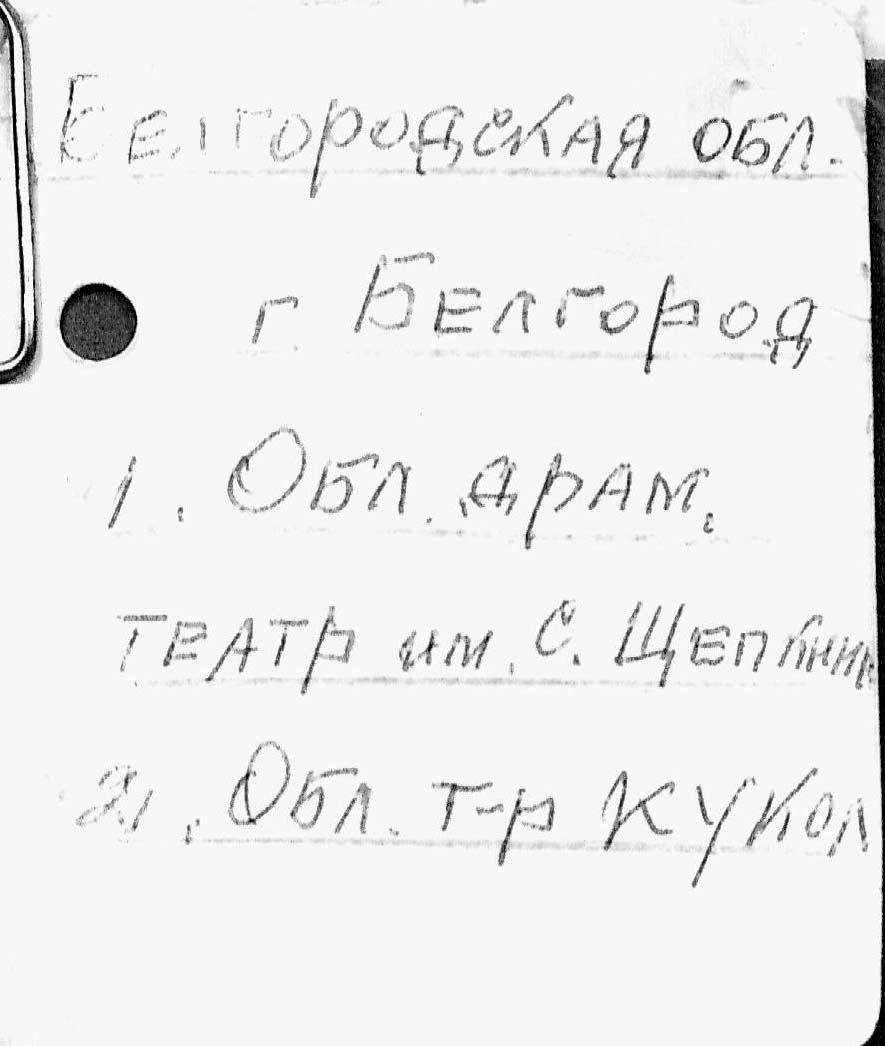 Белгородская обл.
г. Белгород
1. Обл. драм.
театр им. С. Щепкин
2. Обл. т-р кукол